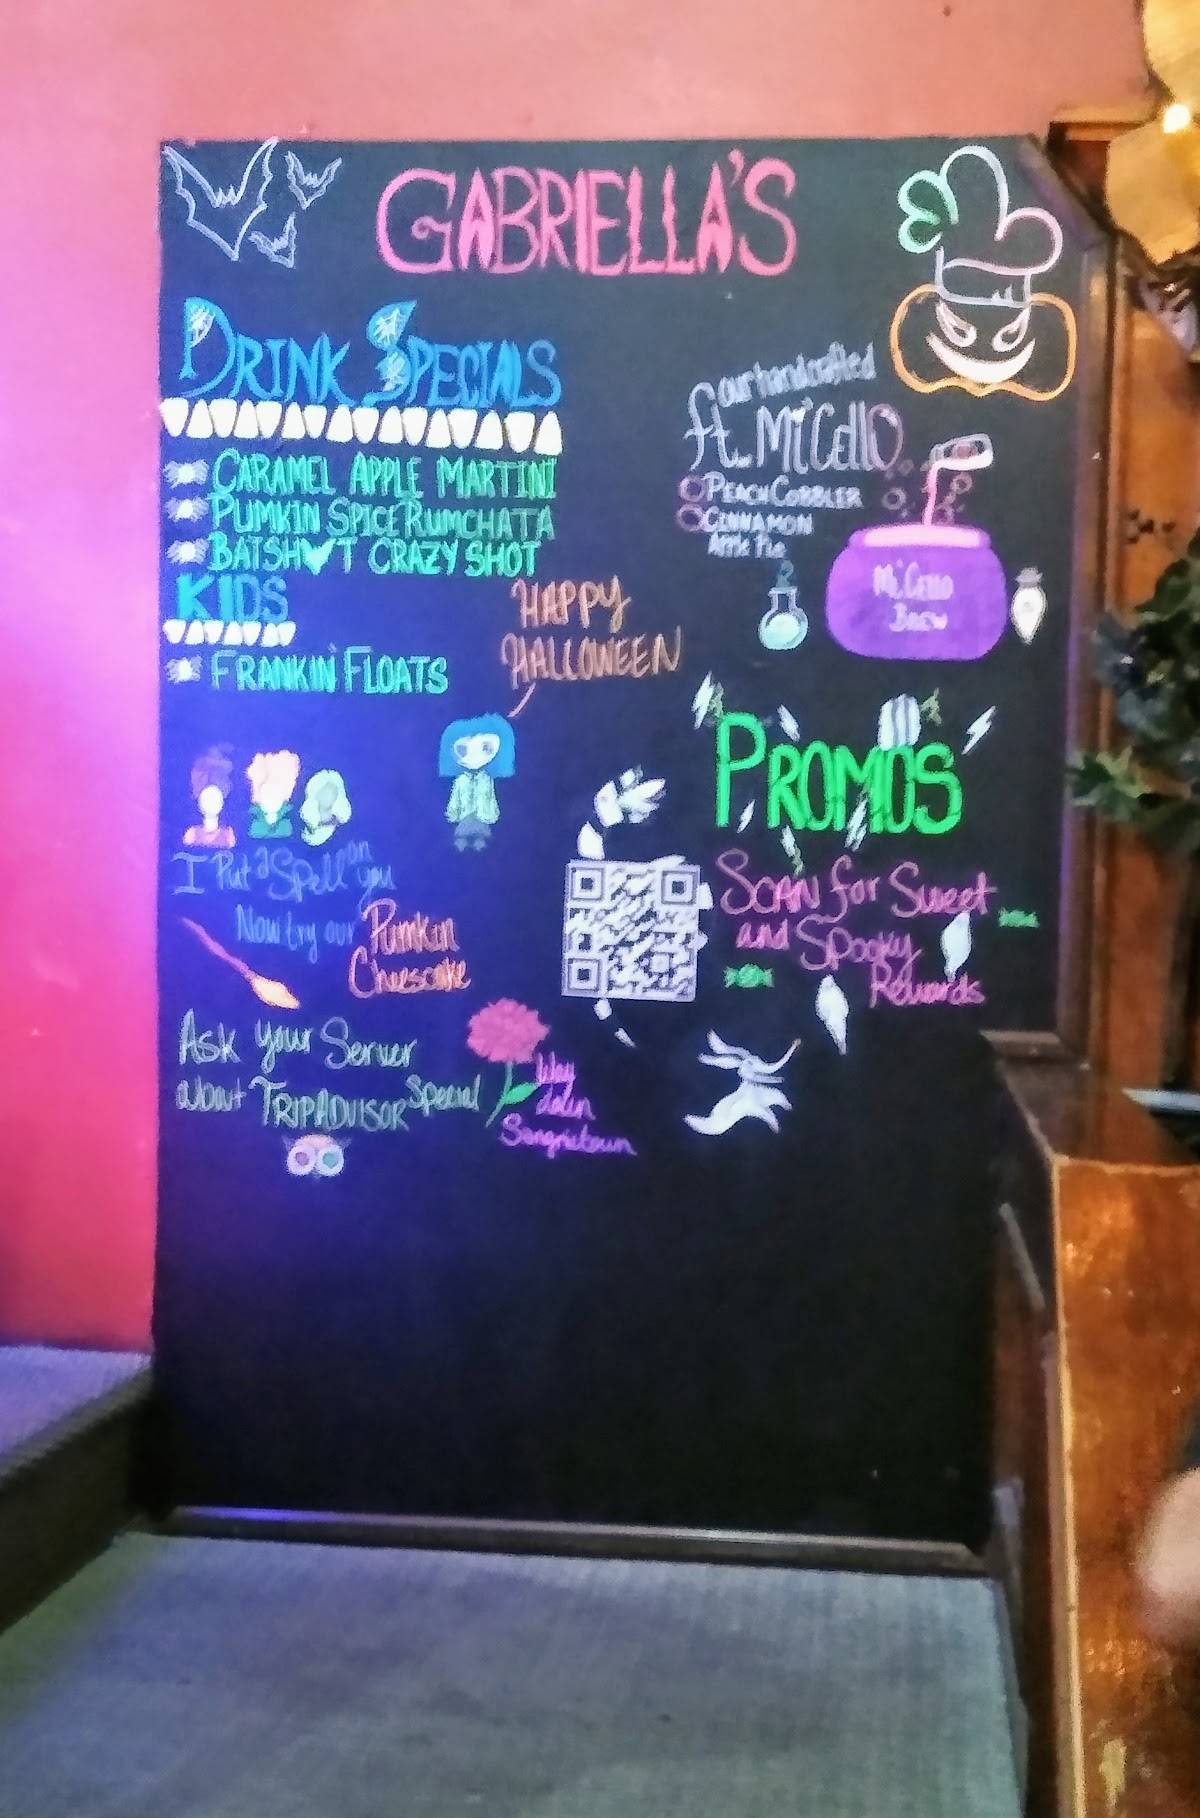 GABRIELLA'S
DRINK SPECIALS
CARAMEL APPLE MARTINI
PUMKIN SPICE RUMCHATA
BATSH♥T CRAZY SHOT
KIDS
FRANKIN' FLOATS
our handcrafted
ft. Mi'Cello
PEACH COBBLER
CINNAMON
Apple Pie
Mi'Cello
Brew
HAPPY
HALLOWEEN
I Put a Spell on
you
Now try our Pumkin
Cheescake
PROMOS
SCAN for Sweet
and Spooky
Rewards
Ask your Server
about TRIPADVISOR Special
Way
down
Sangriatown